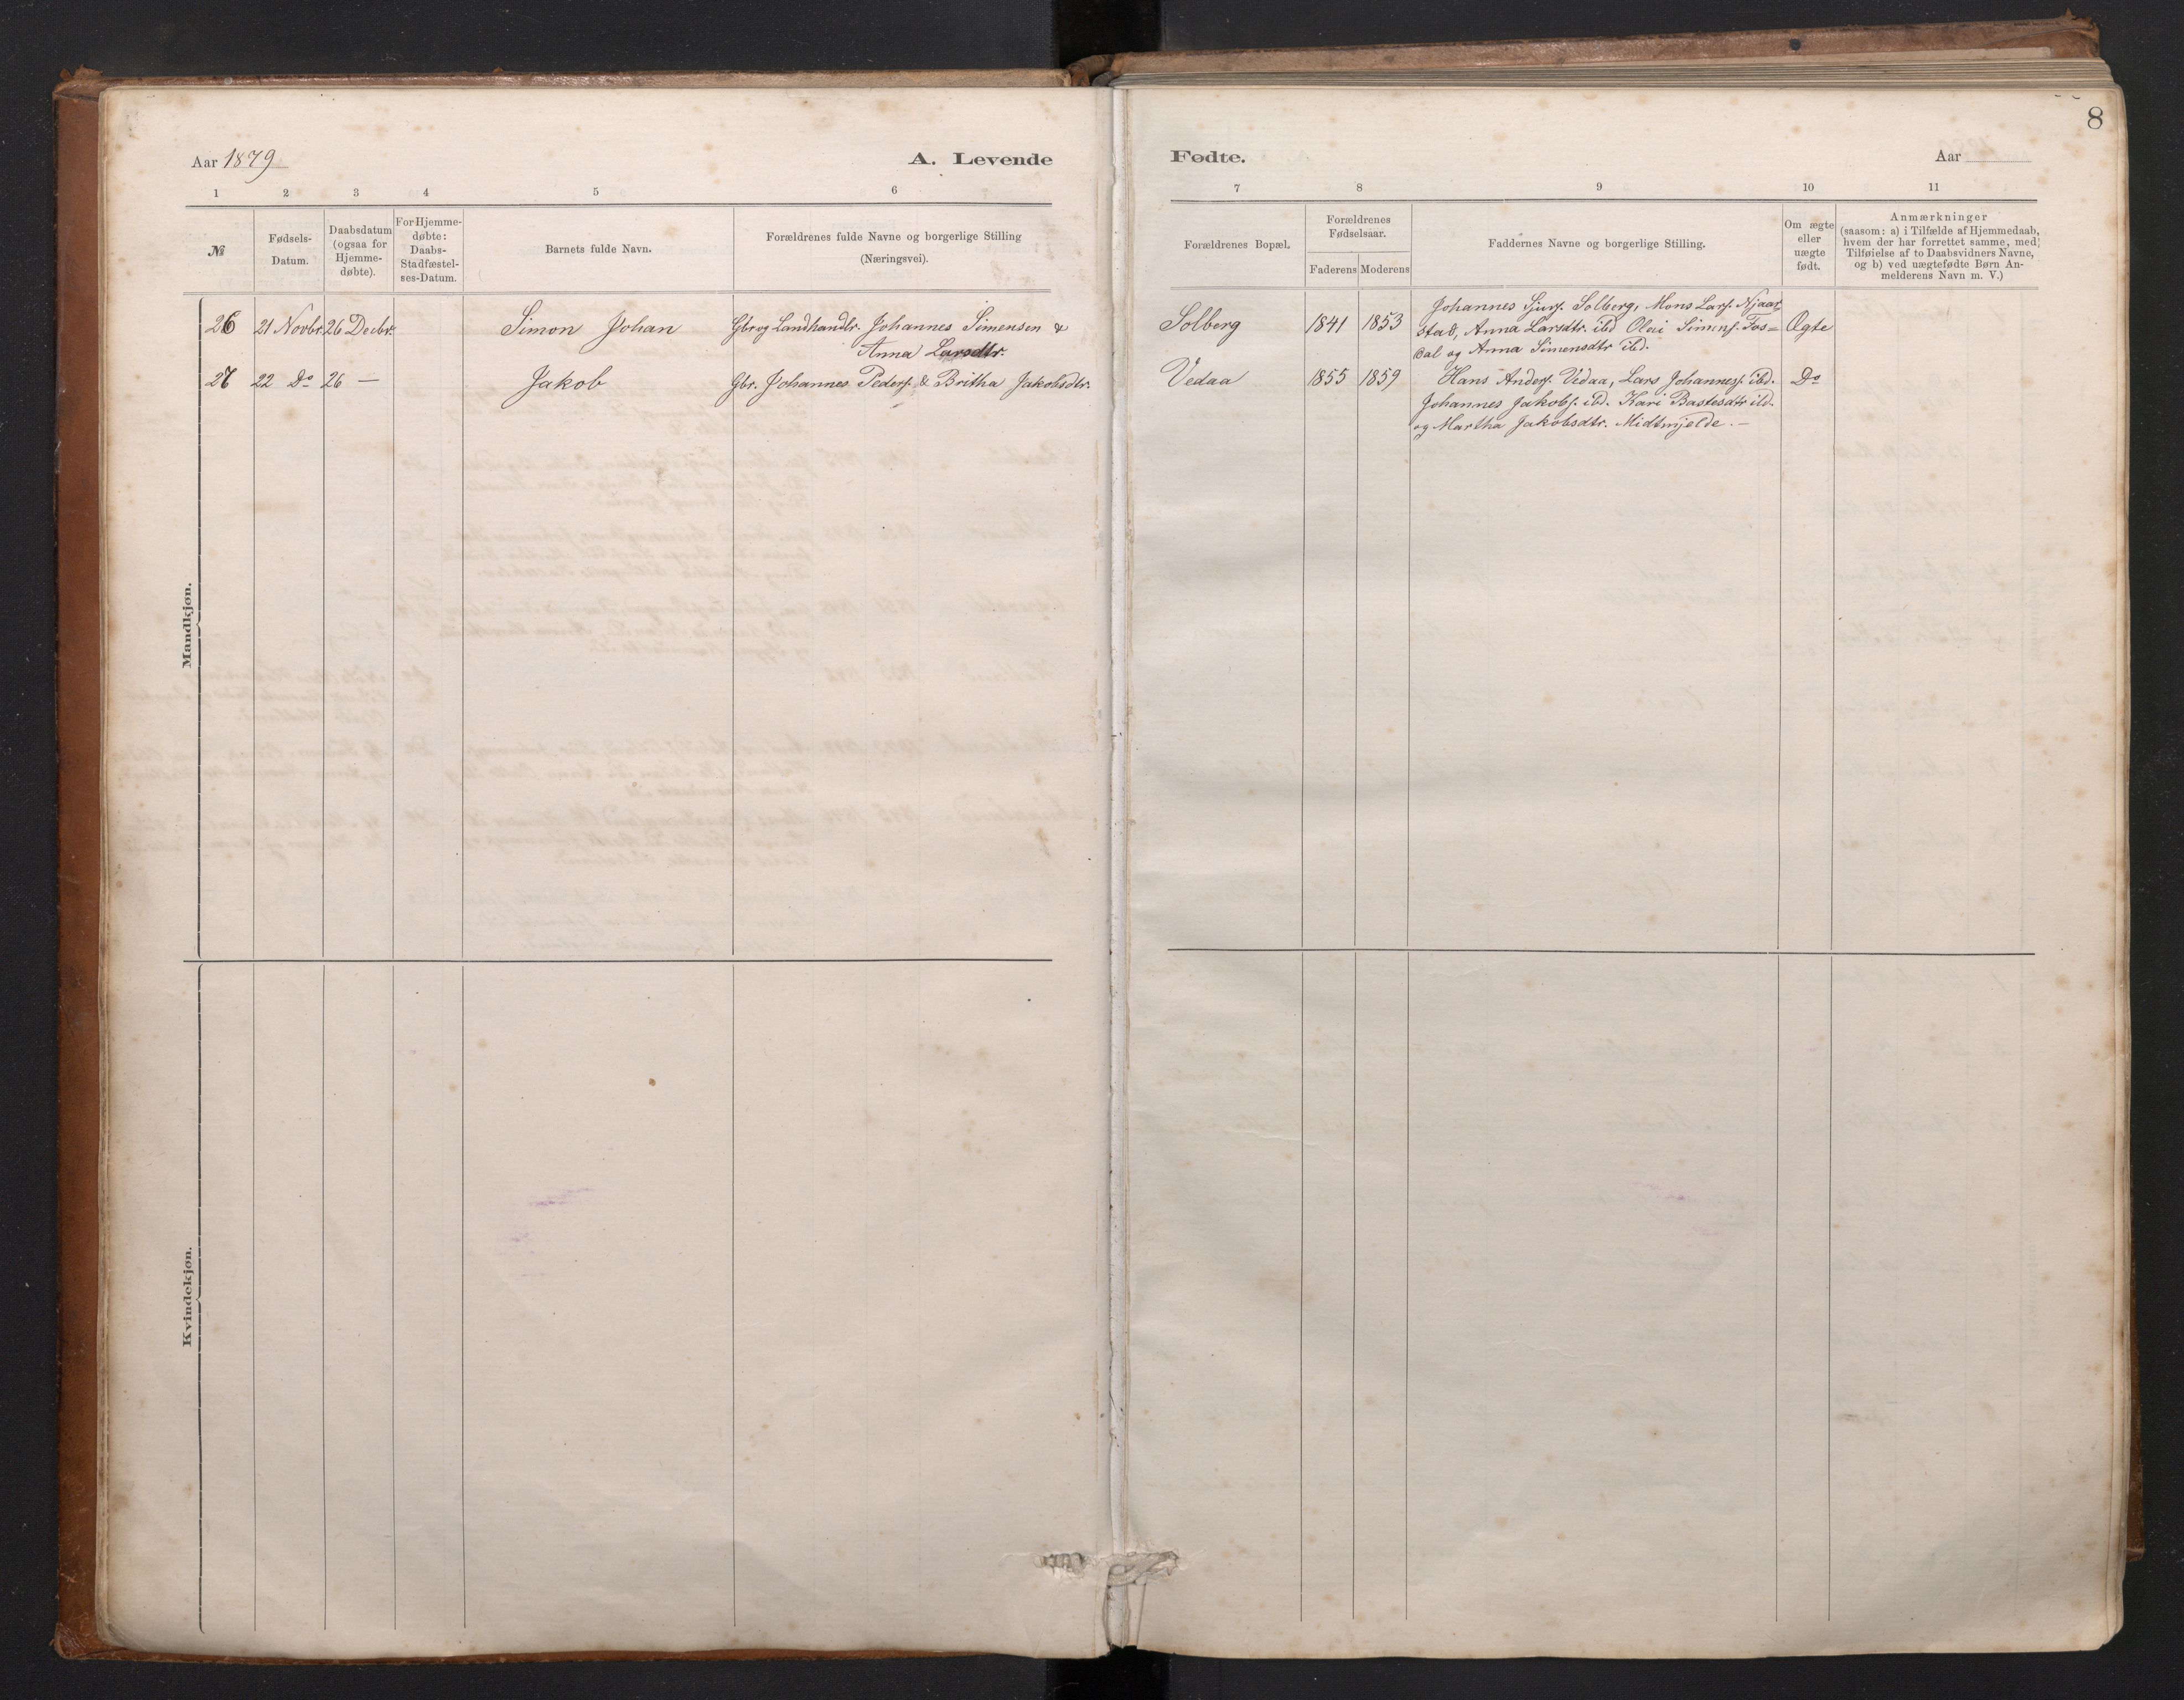 8
Aar 1879
A. Levende
Fødte.
Aar
1 2 3 4 5 6
7 8 9 10 11
№
Fødsels-
Datum.
Daabsdatum
(ogsaa for
Hjemme-
døbte).
For Hjemme-
døbte:
Daabs-
Stadfæstel-
ses-Datum.
Barnets fulde Navn.
Forældrenes fulde Navne og borgerlige Stilling
(Næringsvei).
Forældrenes Bopæl.
Forældrenes
Fødselsaar.
Faderens Moderens
Faddernes Navne og borgerlige Stilling.
Om ægte
eller
uægte
født.
Anmærkninger
(saasom: a) i Tilfælde af Hjemmedaab,
hvem der har forrettet samme, med
Tilføielse af to Daabsvidners Navne,
og b) ved uægtefødte Børn An-
melderens Navn m. V.)
Mandkjøn.
26 21 Novbr. 26 Decbr. Simon Johan Gbr og Landhandlr. Johannes Simensen &
Anna Larsdtr.
Solberg 1841 1853 Johannes Sjurs. Solberg, Mons Lars. Njaar
stad, Anna Larsdtr. ibd Olai Simens. Fos=
dal og Anna Simensdtr ibd.
Ægte
27 22 Do 26 — Jakob Gbr. Johannes Peders. & Britha Jakobsdtr.
Vedaa 1855 1859 Hans Anders. Vedaa, Lars Johanness. ibd.
Johannes Jakobs. ibd. Kari Bastesdtr ibd.
og Martha Jakobsdtr. Midtmjelde. —
Do
Kvindekjøn.